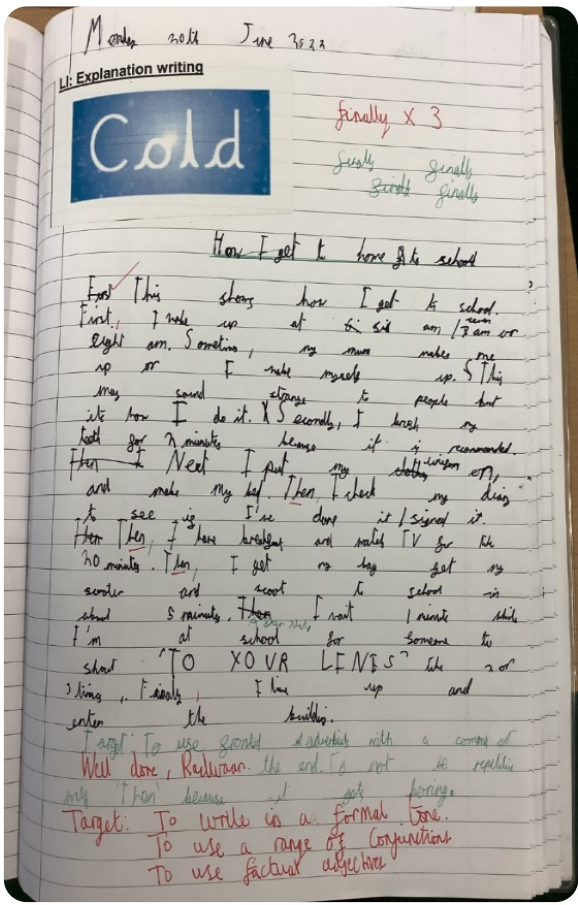 Monday 20th June 2022
LI: Explanation writing
Cold
finally x 3
finally finally
finally finally
How I get to home to school
First This shows how I get to school.
First, I wake up at six am / seven am or
eight am. Sometims, my mum wakes me
up or I wake myself up. S This
may sound strange to people but
its how I do it. Secondly, I brush my
teeth for 2 minutes because it is recommended.
Then I Next I put my clothes uniform on,
and make my bed. Then, I check my diary
to see if I've done it / signed it.
Then Then, I have breakfast and watch TV for like
20 minutes. Then, I get my bag get my
scooter and scoot to school in
about 5 minutes. Then I wait 1 minute while
I'm at school for someone to
shout "TO YOUR LINES" like 2 or
3 times. Finally, I line up and
enter the building.
Target: To use fronted adverbials with a comma at
Well done, Radwaan. the end. To not be repetitive
only 'Then' because it gets borring.
Target: To write in a formal tone.
To use a range of conjunctions
To use factual adjectives